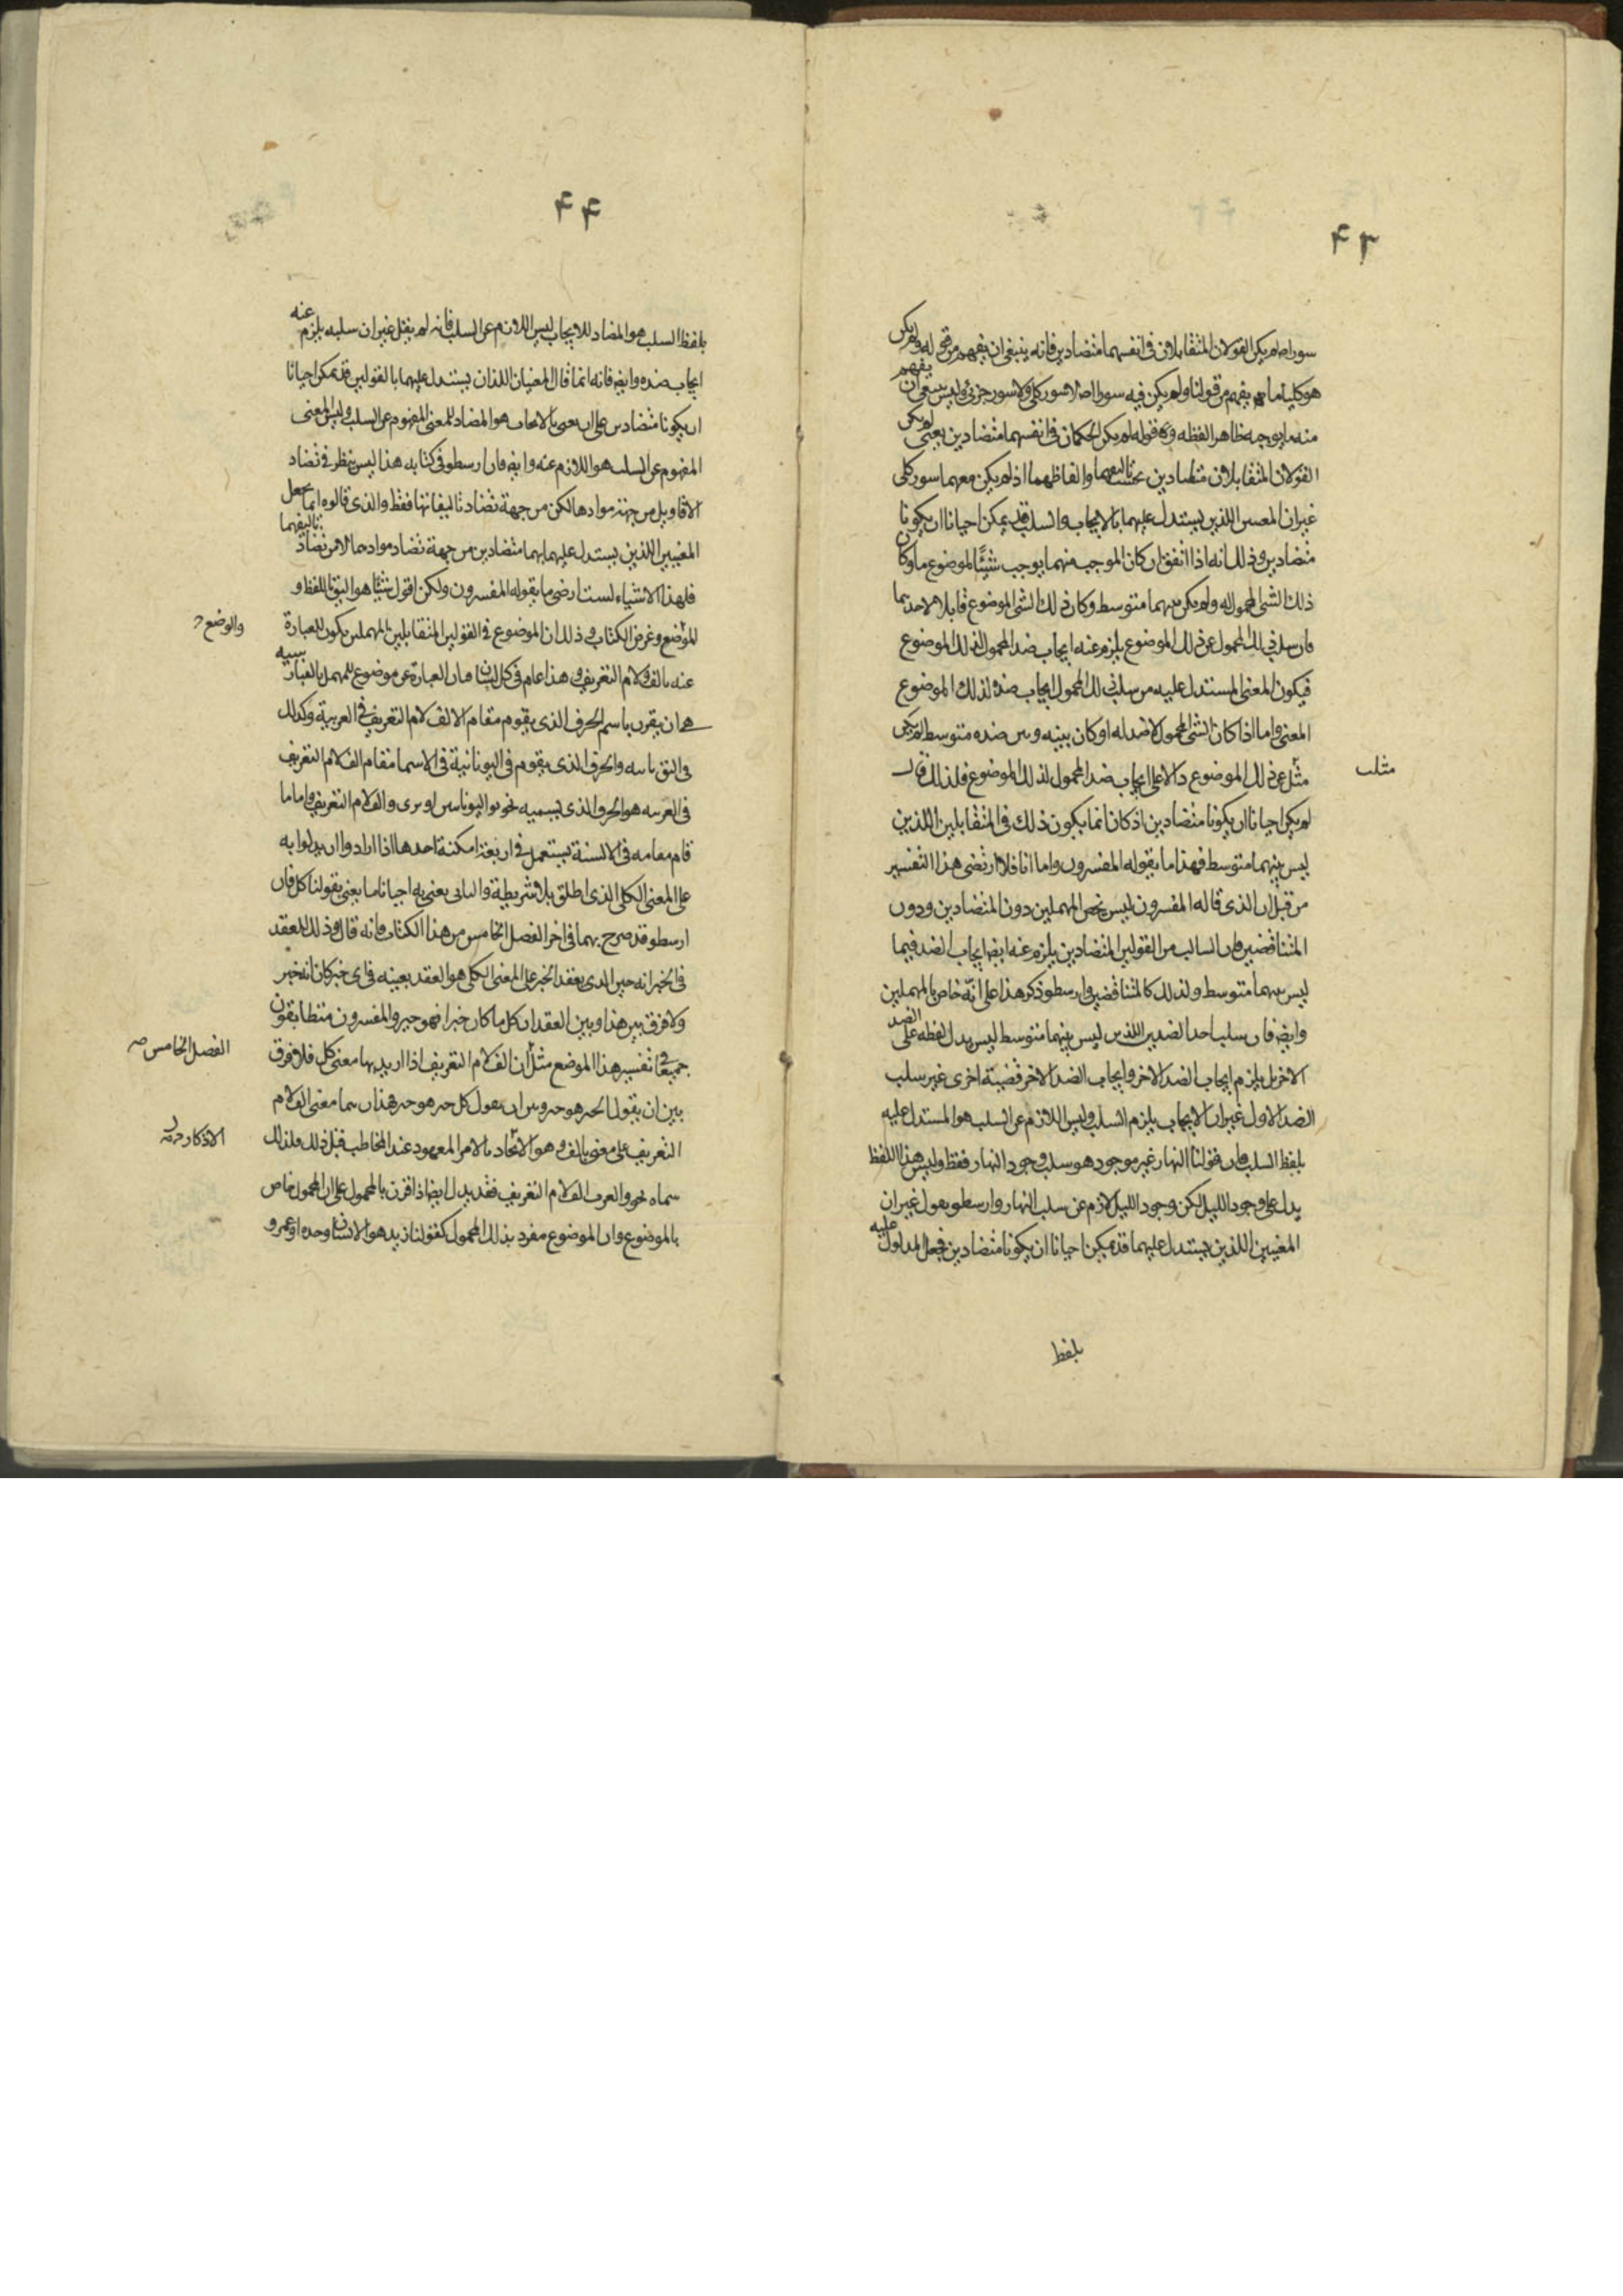 ۴۳
سور اصلا لم يكن القولان المتقابلان في انفسهما متضادين فانه ينبغي ان يفهم من قوله ولم يكن
هو كليا ما يفهم من قولنا ولم يكن فيه سور اصلا لا سور كلي ولا سور جزئي وليس ينبغي ان يفهم
منه ما يوجبه ظاهر لفظه وقوله لم يكن الحكمان في انفسهما متضادين يعني لم يكن
القولان المتقابلان متضادين بحسب تاليفهما والفاظهما اذ لم يكن معهما سور كلي
غير ان المعنيين اللذين يستدل عليهما بالايجاب والسلب قد يمكن احيانا ان يكونا
متضادين وذلك انه اذا اتفق ان كان الموجب منهما يوجب شيئا لموضوع ما وكان
ذلك الشي المحمول له ولم يكن بينهما متوسط وكان ذلك الشي الموضوع قابلا لاحدهما
فان سلب ذلك المحمول عن ذلك الموضوع يلزم عنه ايجاب ضد المحمول لذلك الموضوع
فيكون المعنى المستدل عليه من سلب ذلك المحمول ايجاب ضده لذلك الموضوع
المعنى واما اذا كان الشي المحمول لا ضد له او كان بينه وبين ضده متوسط لم يكن
مثل عن ذلك الموضوع دالا على ايجاب ضد المحمول لذلك الموضوع فلذلك قال
مثلب
لم يكن احيانا ان يكونا متضادين اذ كان انما يكون ذلك في المتقابلين اللذين
ليس بينهما متوسط فهذا ما يقوله المفسرون واما انا فلا ارتضي هذا التفسير
من قبل ان الذي قاله المفسرون ليس يخص المهملين دون المتضادين ودون
المتناقضين فان السالب من القولين المتضادين يلزم عنه ايضا ايجاب الضد فيما
ليس بينهما متوسط ولذلك كالمتناقضين وارسطو ذكر هذا على انه خاص بالمهملين
وايضا فان سلب احد الضدين اللذين ليس بينهما متوسط ليس يدل لفظه على الضد
الاخر بل يلزم ايجاب الضد الاخر وايجاب الضد الاخر قضية اخرى غير سلب
الضد الاول غير ان الايجاب يلزم السلب وليس اللازم عن السلب هو المستدل عليه
بلفظ السلب فان قولنا النهار غير موجود هو سلب وجود النهار فقط وليس هذا اللفظ
يدل على وجود الليل لكن وجود الليل لازم عن سلب النهار وارسطو يقول غير ان
المعنيين اللذين يستدل عليهما قد يمكن احيانا ان يكونا متضادين فجعل المدلول عليه
بلفظ
۴۴
بلفظ السلب هو المضاد للايجاب ليس اللازم عن السلب فانه لم يقل غير ان سلبه يلزم عنه
ايجاب ضده وايضا فانه انما قال المعنيان اللذان يستدل عليهما بالقولين قد يمكن احيانا
ان يكونا متضادين على ان يعني بالايجاب هو المضاد للمعنى المفهوم عن السلب وليس المعنى
المفهوم عن السلب هو اللازم عنه وايضا فان ارسطو في كتابه هذا ليس ينظر في تضاد
الاقاويل من جهة موادها لكن من جهة تضاد تاليفاتها فقط والذي قالوه انما يجعل
المعنيين اللذين يستدل عليهما بهما متضادين من جهة تضاد موادهما لا من تضاد تاليفهما
فلهذا الاشياء لست ارضى ما يقوله المفسرون ولكن اقول شيئا هو اليق باللفظ و
الموضع وغرض الكتاب وذلك ان الموضوع في القولين المتقابلين المهملين يكون العبارة
والوضع
عنه بالف ولام التعريف وهذا عام في كل لسان فان العبارة عن موضوع المهمل بالعبارة
هي ان يقرن باسم الحرف الذي يقوم مقام الالف لام التعريف في العربية وكذلك
والحرف الذي يقوم في اليونانية في الاسما مقام الف لام التعريف
في العربية هو الحرف الذي يسميه نحويو اليونانيين والف لام التعريف واما ما
قام مقامه في الالسنة يستعمل في اربعة امكنة احدها اذا ارادوا ان يدلوا به
على المعنى الكلي الذي اطلق بلا شريطة والثاني يعني به احيانا ما يعنى بقولنا كل فان
ارسطو قد صرح بهما في اخر الفصل الخامس من هذا الكتاب فانه قال وذلك للعقد
في الخير انه خير الذي يعقد الخير على المعنى الكلي هو العقد بعينه في اي خير كان انه خير
ولا فرق بين هذا وبين العقد ان كل ما كان خيرا فهو خير والمفسرون متطابقون
جميعا في تفسير هذا الموضع مثل ان الف لام التعريف اذا اريد بها معنى كل فلا فرق
الفصل الخامس
بين ان يقول الخير هو خير وبين ان يقول كل خير هو خير هذان هما معنى الف لام
التعريف على معنى بالف وهو الاتحاد بالامر المعهود عند المخاطب قبل ذلك ولذلك
سماه نحويو العرب الف لام التعريف فقد يدل ايضا اذا قرن بالمحمول على ان المحمول خاص
بالموضوع وان الموضوع مفرد بذلك المحمول كقولنا زيد هو الانسان وحده او عمرو